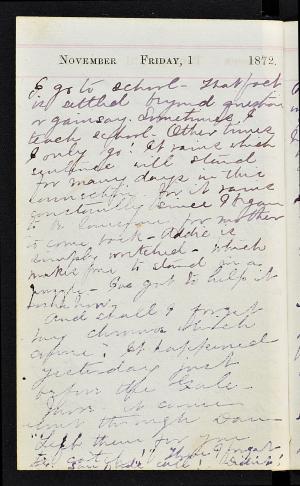 November Friday, 1 1872.
I go to school - That fact
is settled beyond question
or gainsay. Sometimes I
teach school - Other times
I only "go". It rains which
sentence will stand
for many days in this
connection. For it rains
constantly since I began
to be lonesome for mother
to come back - Addie is
simply wretched - which
makes me to stand in a
I've got to help it
And shall I forget
my which
came? It happened
yesterday just
before the
There it came
out through
"Left them for you
to !" There I forgot